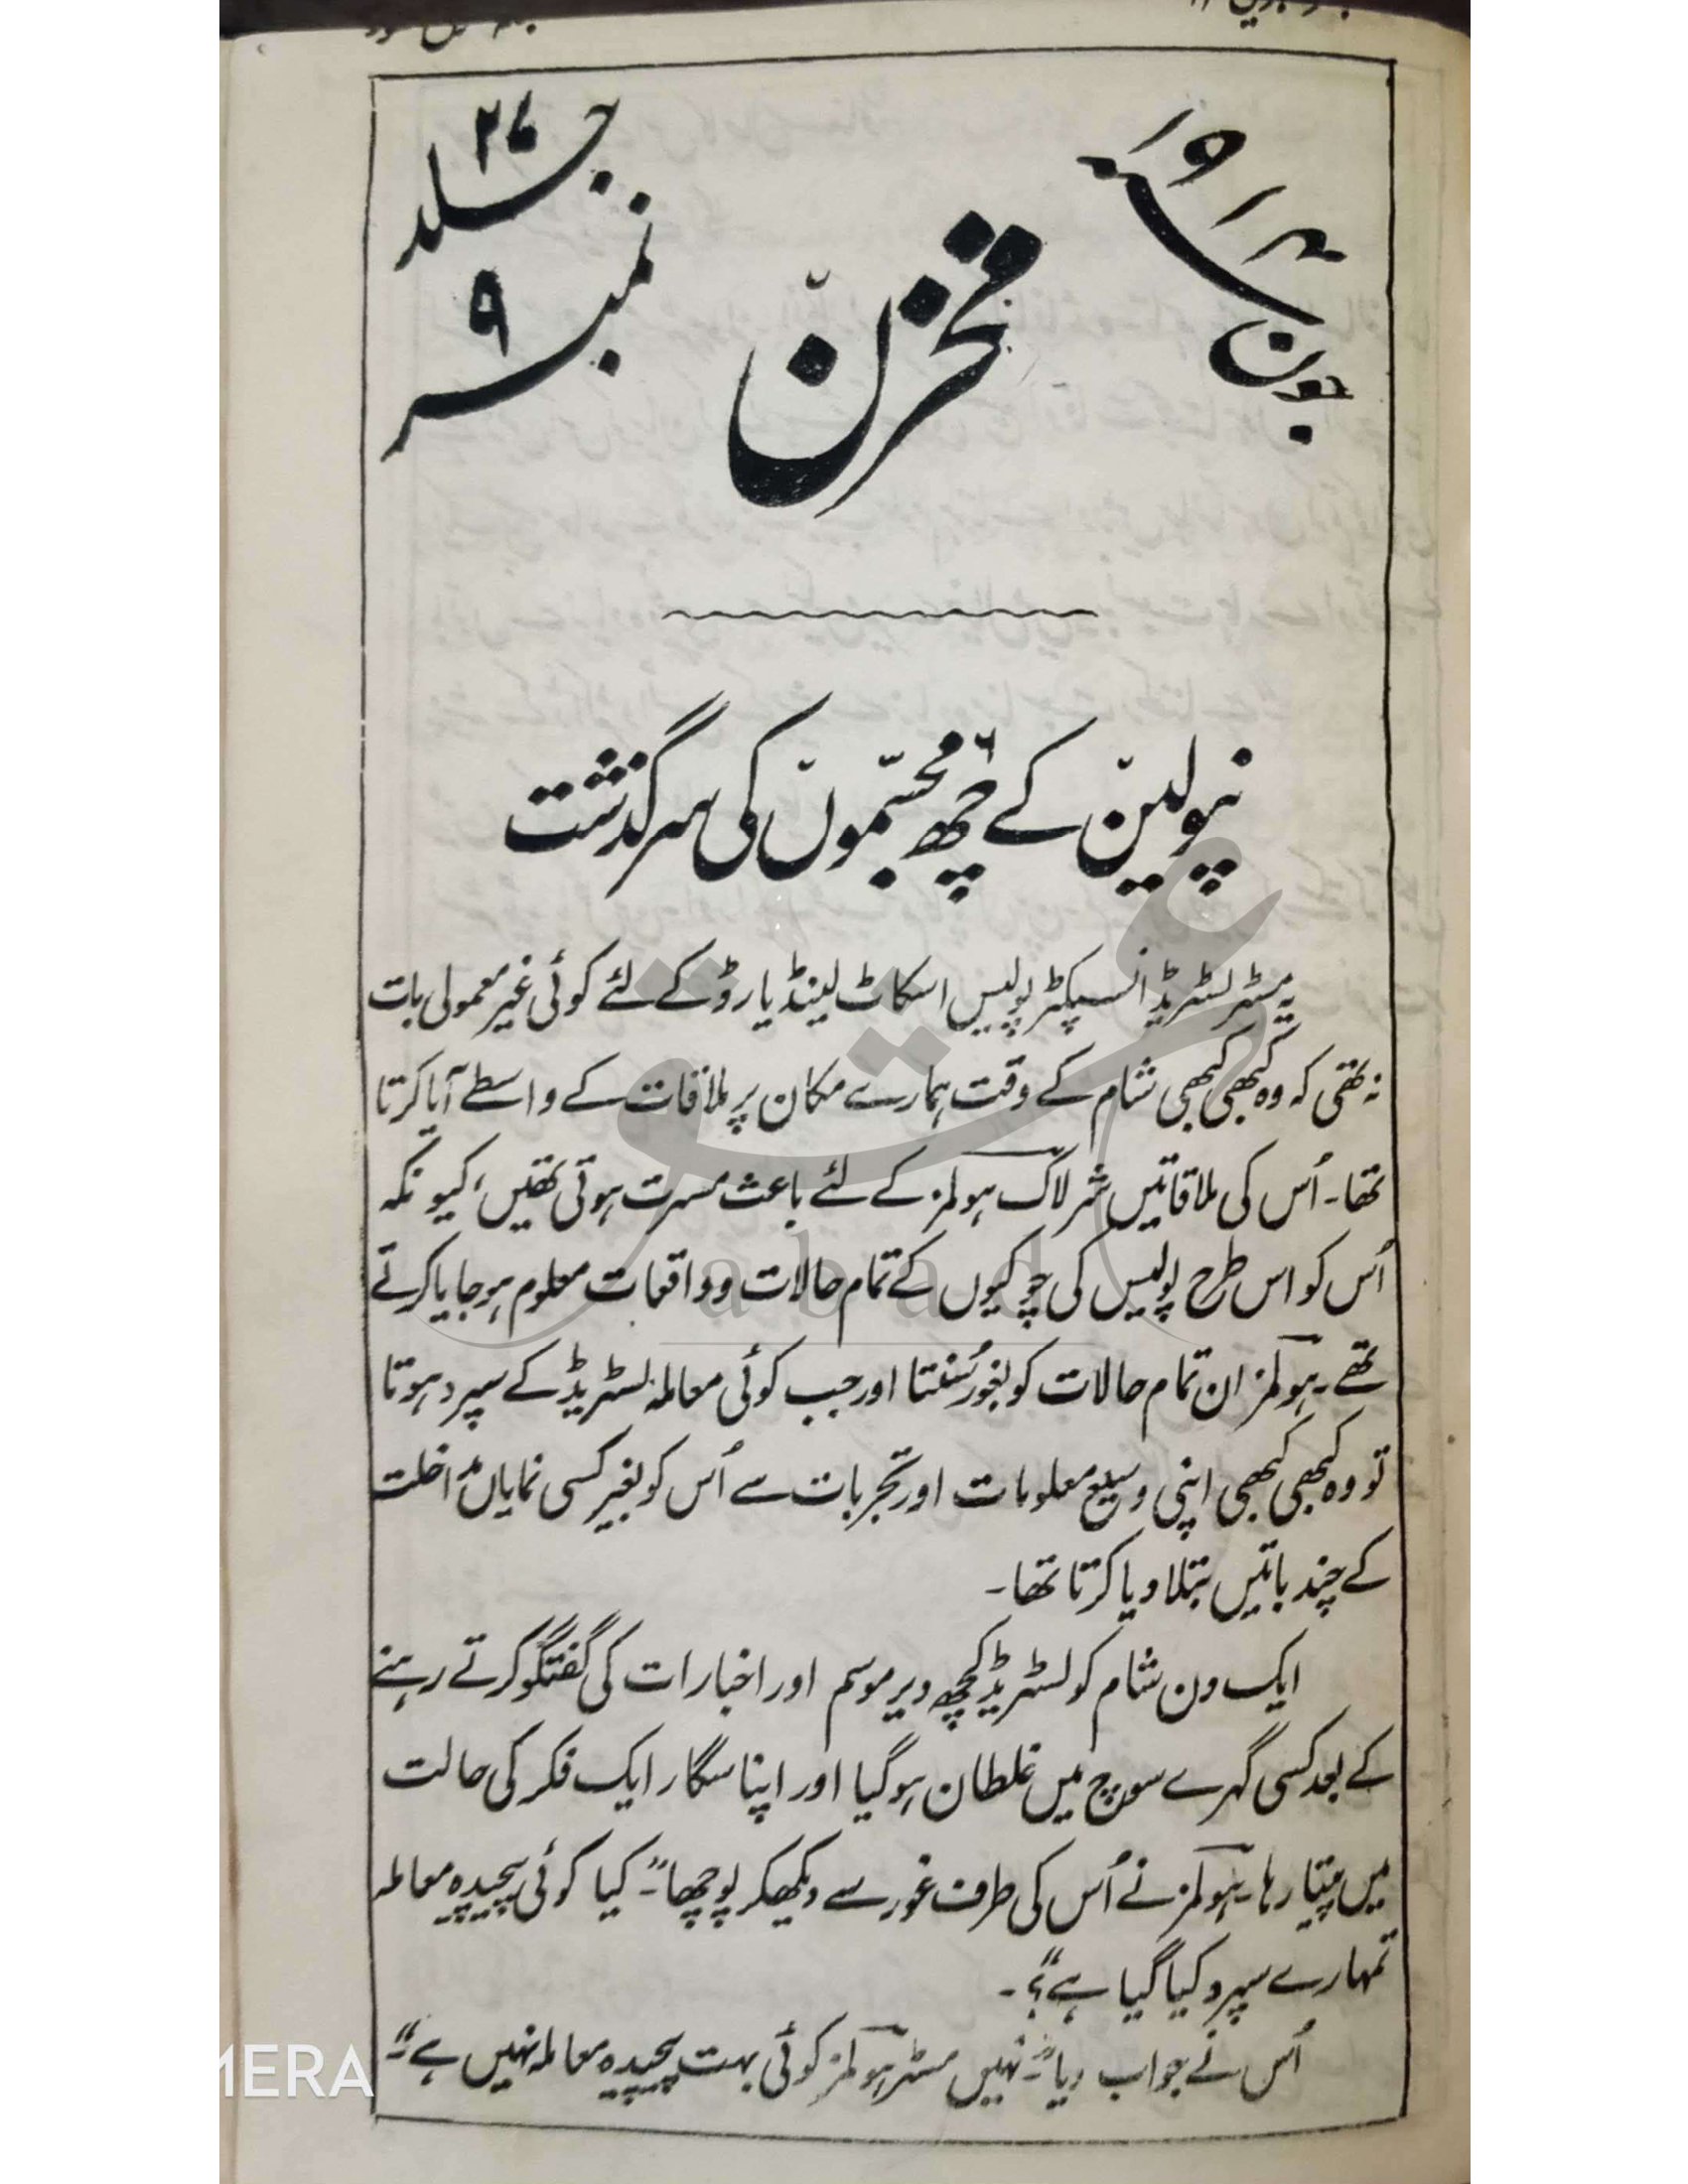 جون سنہ ۱۹۱۴ء
مخزن
جلد ۲۷
نمبر ۹
نپولین کے چھ ۶ مجسّموں کی سرگذشت
یہ مسٹر لسٹریڈ انسپکٹر پولیس اسکاٹ لینڈ یارڈ کے لئے کوئی غیر معمولی بات
نہ تھی کہ وہ کبھی کبھی شام کے وقت ہمارے مکان پر ملاقات کے واسطے آیا کرتا
تھا۔ اُس کی ملاقاتیں شرلاک ہولمز کے لئے باعث مسرت ہوتی تھیں، کیونکہ
اُس کو اس طرح پولیس کی چوکیوں کے تمام حالات و واقعات معلوم ہو جایا کرتے
تھے۔ ہولمز ان تمام حالات کو بغور سُنتا اور جب کوئی معاملہ لسٹریڈ کے سپرد ہوتا
تو وہ کبھی کبھی اپنی وسیع معلومات اور تجربات سے اُس کو بغیر کسی نمایاں مداخلت
کے چند باتیں بتلا دیا کرتا تھا۔
ایک دن شام کو لسٹریڈ کچھ دیر موسم اور اخبارات کی گفتگو کرتے رہنے
کے بعد کسی گہرے سوچ میں غلطان ہو گیا اور اپنا سگار ایک فکر کی حالت
میں پیتا رہا۔ ہولمز نے اُس کی طرف غور سے دیکھکر پوچھا۔ "کیا کوئی پیچیدہ معاملہ
تمہارے سپرد کیا گیا ہے؟"۔
اُس نے جواب دیا۔ "نہیں مسٹر ہولمز کوئی بہت پیچیدہ معاملہ نہیں ہے۔"
abad
MERA